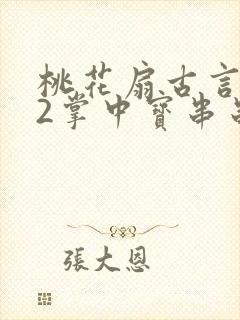 桃花扇古言
2掌中寶串
張大恩